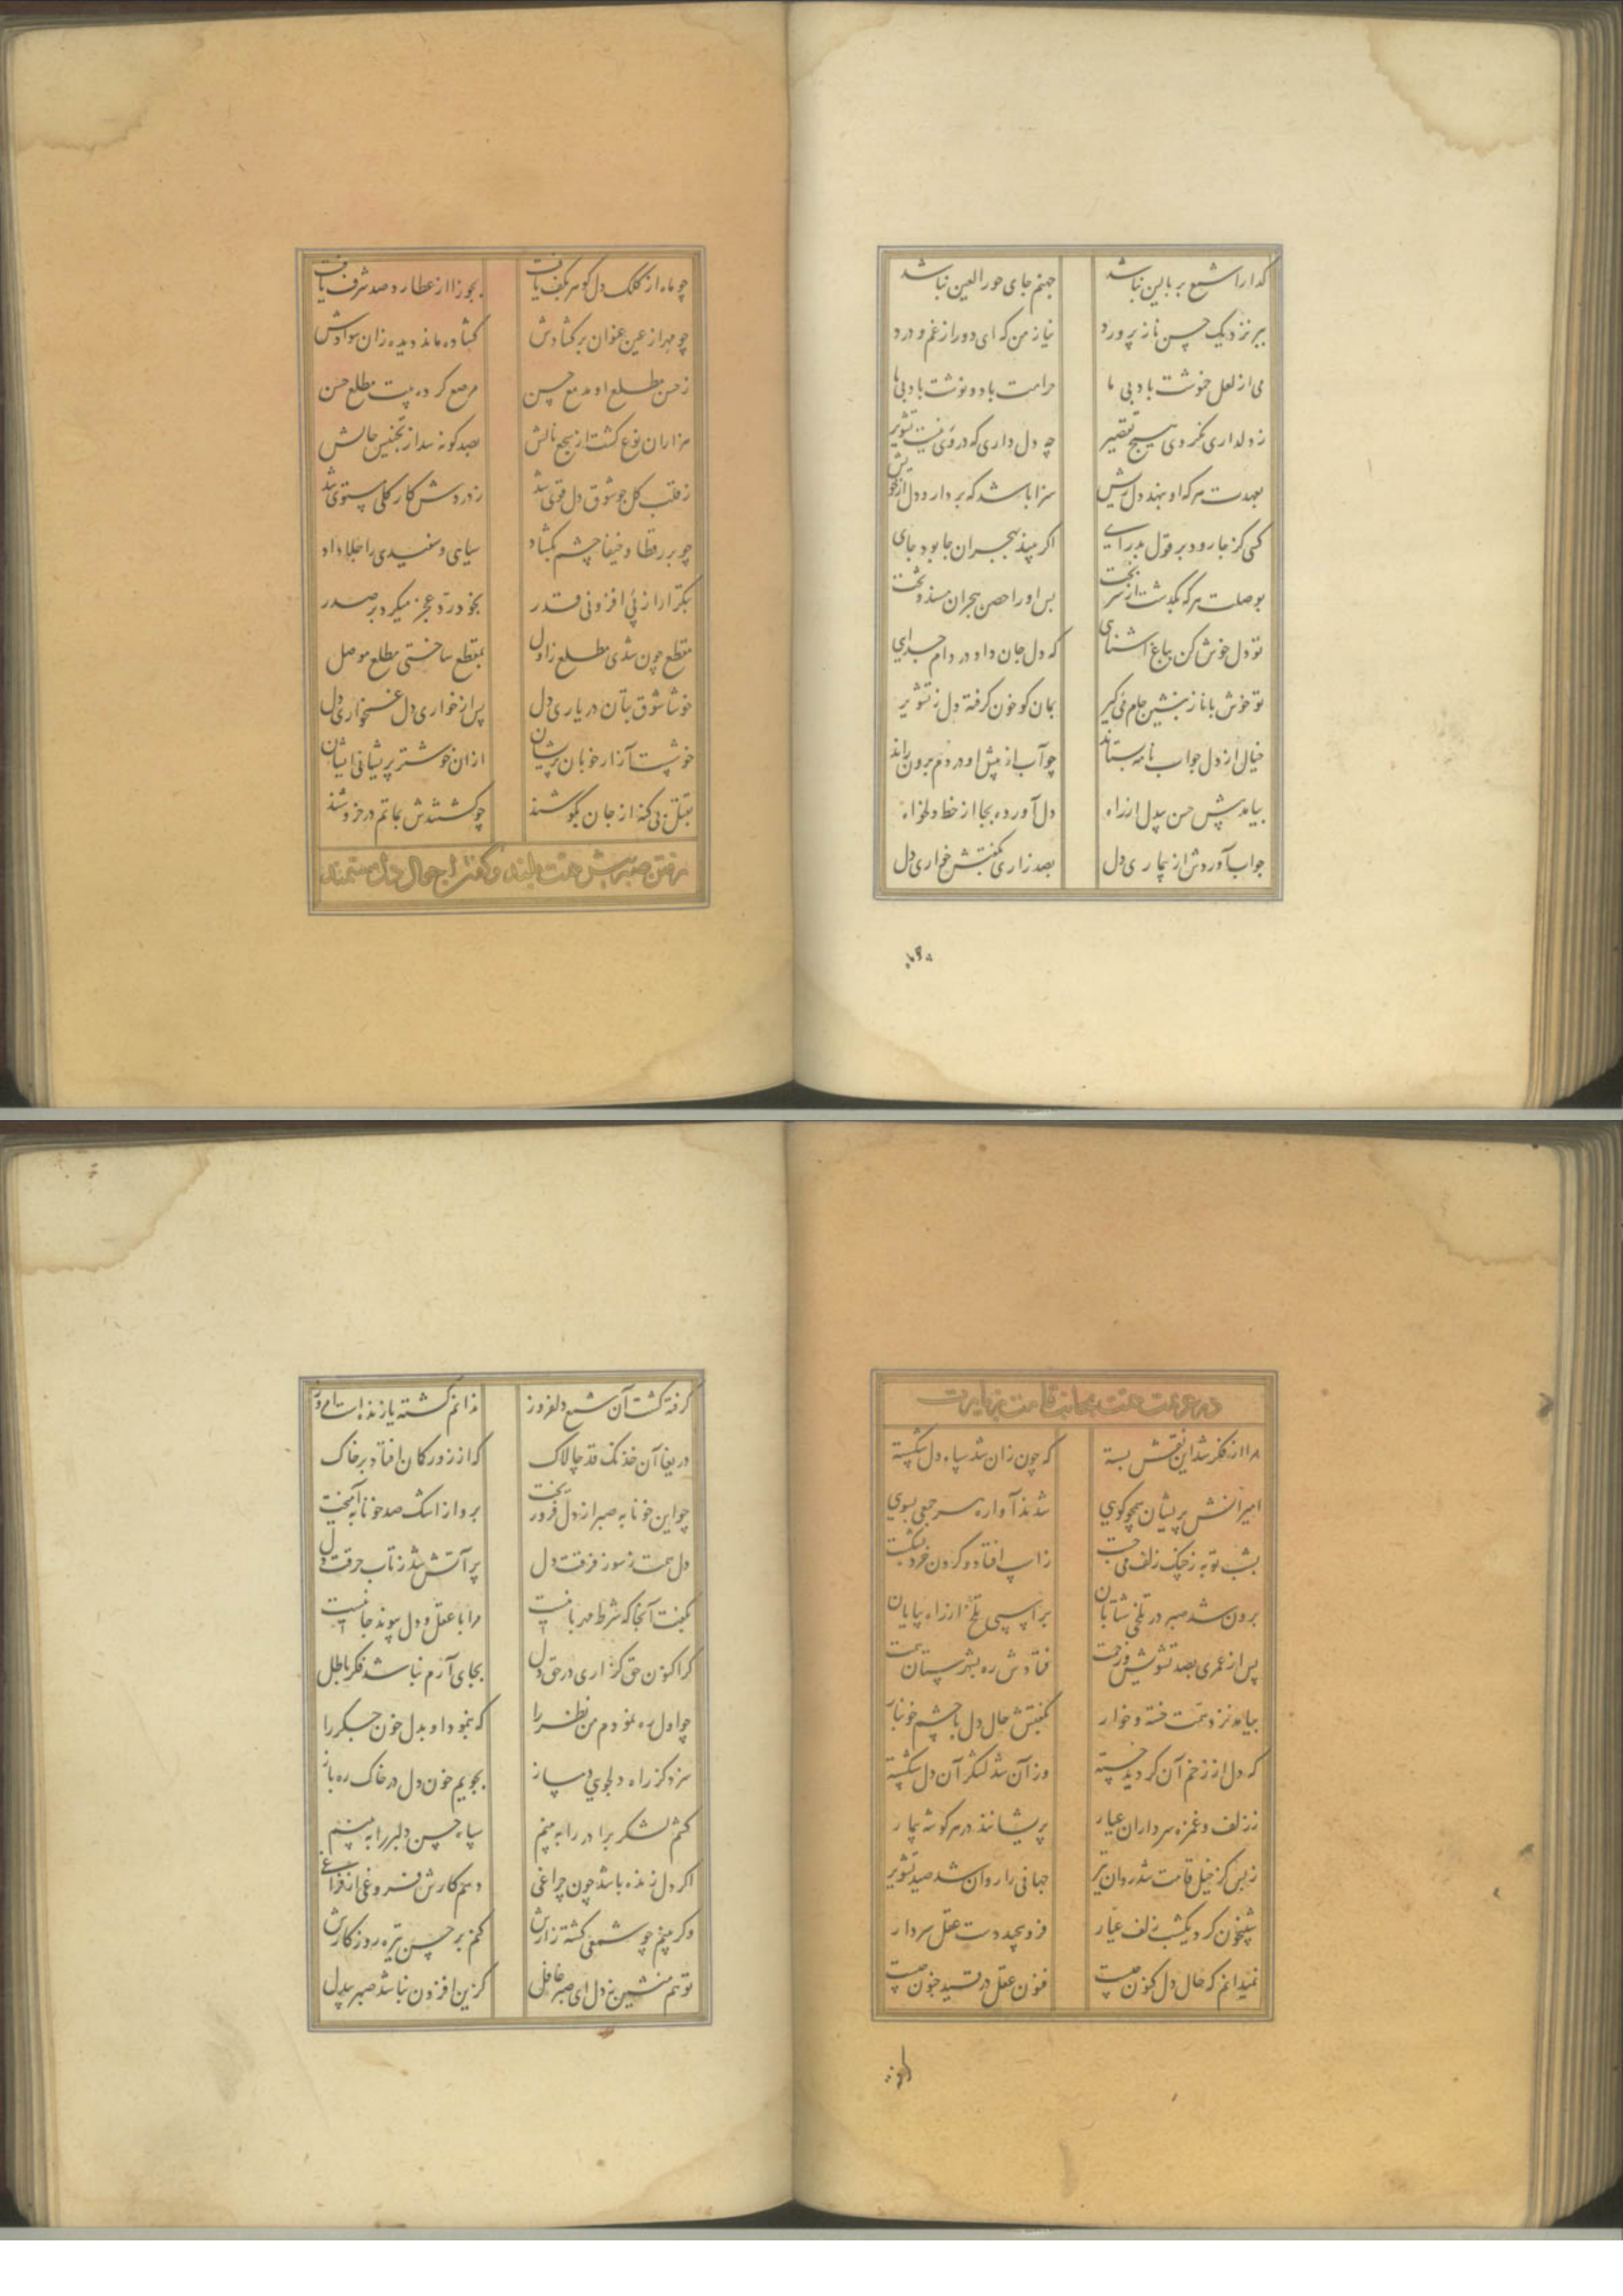 گدا را شمع بر بالین نباشد جهنم جای حور العین نباشد
ببر نزدیک حسن ناز پرورد نیاز من که ای دور از غم و درد
می از لعل خوشت بادا بی ما حرامت باد و نوشت باد بی ما
ز دلداری نکردی هیچ تقصیر چه دل داری که در وی نیست تشویر
بعهدت هر که او بنهد دل ریش سزا باشد که بردارد دل از خویش
کسی کز جا رود بر قول بدرای اگر بیند بهجران جا بود جای
بوصلت هر که بگذشت از سر بخت بس او را حصن هجران مسند و تخت
تو دل خوش کن بباغ آشنایی که دل جان داد در دام جدایی
تو خوش با ناز بنشین جام می گیر بمان کو خون گرفته دل ز تشویر
خیال از دل جواب نامه بستاند چو آب از پیش او در دم برون راند
بیامد پیش حسن بیدل از راه دل آورده بجا از خط دلخواه
جواب آوردش از بیماری دل بصد زاری بگفتش خواری دل
چو ماه از کلک دل گوهر بکف یافت بجوزا از عطارد صد شرف یافت
چو مهر از عین عنوان برگشادش گشاده ماند دیده زان سوادش
ز حسن مطلع او مدمع حسن مرصع کرده بیت مطلع حسن
هزاران نوع گشت از سجع نالش بصد گونه شد از تجنیس حالش
ز قلب کل چو شوق دل قوی شد ز دردش کار کلی مستوی شد
چو بر رقطا و خیفا چشم بگشاد سیاهی و سفیدی را جلا داد
بتکرار از پی افزونی قدر بخود رد عجز میکرد بر صدر
مقطع چون شدی مطلع ز اول بمقطع ساختی مطلع موصل
خوشا شوق بتان در یاری دل پس از خواری دل غمخواری دل
خوشست آزار خوبان پریشان ازان خوشتر پشیمانی ایشان
بقتل بی گنه از جان بکوشند چو کشتندش بماتم در خروشند
رفتن صبر پیش همت بلند و گفتن احوال دل مستمند
در عزیمت همت بجانب قامت بزیارت
مرا از فکر شد این نقش بسته که چون زان شد سپاه دل شکسته
امیرانش پریشان همچو گویی شدند آواره هر جمعی بسویی
بشب توبه ز چنگ زلف می جست ز اسپ افتاد و گردن خرد بشکست
برون شد صبر در تلخی شتابان بر اسپی تلخ از راه بیابان
پس از عمری بصد تشویش و زحمت فتادش ره بشهرستان همت
بیامد نزد همت خسته و خوار بگفتش حال دل با چشم خونبار
که دل از زخم آن گردید خسته وز آن شد لشکر آن دل شکسته
ز زلف و غمزه سرداران عیار پریشانند در هر گوشه بیمار
ز بس کز خیل قامت شد روان تیر جهانی را روان شد صید تشویر
شبیخون کرد یکشب زلف عیار فرو پیچید دست عقل سردار
نمیدانم که حال دل کنون چیست فنون عقل در قید جنون چیست
گرفته گشت آن شمع دلفروز ندانم کشته یا زنده است امروز
دریغا آن خدنگ قد چالاک که از زور کمان افتاد بر خاک
چو این خونابه صبر از دل فرو ریخت برو از اشک صد خونابه آمیخت
دل همت ز سوز فرقت دل پر آتش شد ز تاب حرقت دل
بگفت آنجا که شرط مهربانیست مرا با عقل و دل پیوند جانیست
گر اکنون حق گزاری در حق دل بجای آرم نباشد فکر باطل
چو اول ره نمودم من نظر را که بنمود او بدل خون جگر را
سزد کز راه دلجویی دمساز بجویم خون دل در خاک ره باز
کشم لشکر برادر را ببینم سپاه حسن دلبر را ببینم
اگر دل زنده باشد چون چراغی دهم کارش فروغی از فراغی
و گر بینم چو شمعی کشته زارش کنم بر حسن تیره روزگارش
تو هم منشین ز دل ای صبر غافل کزین افزون نباشد صبر بیدل